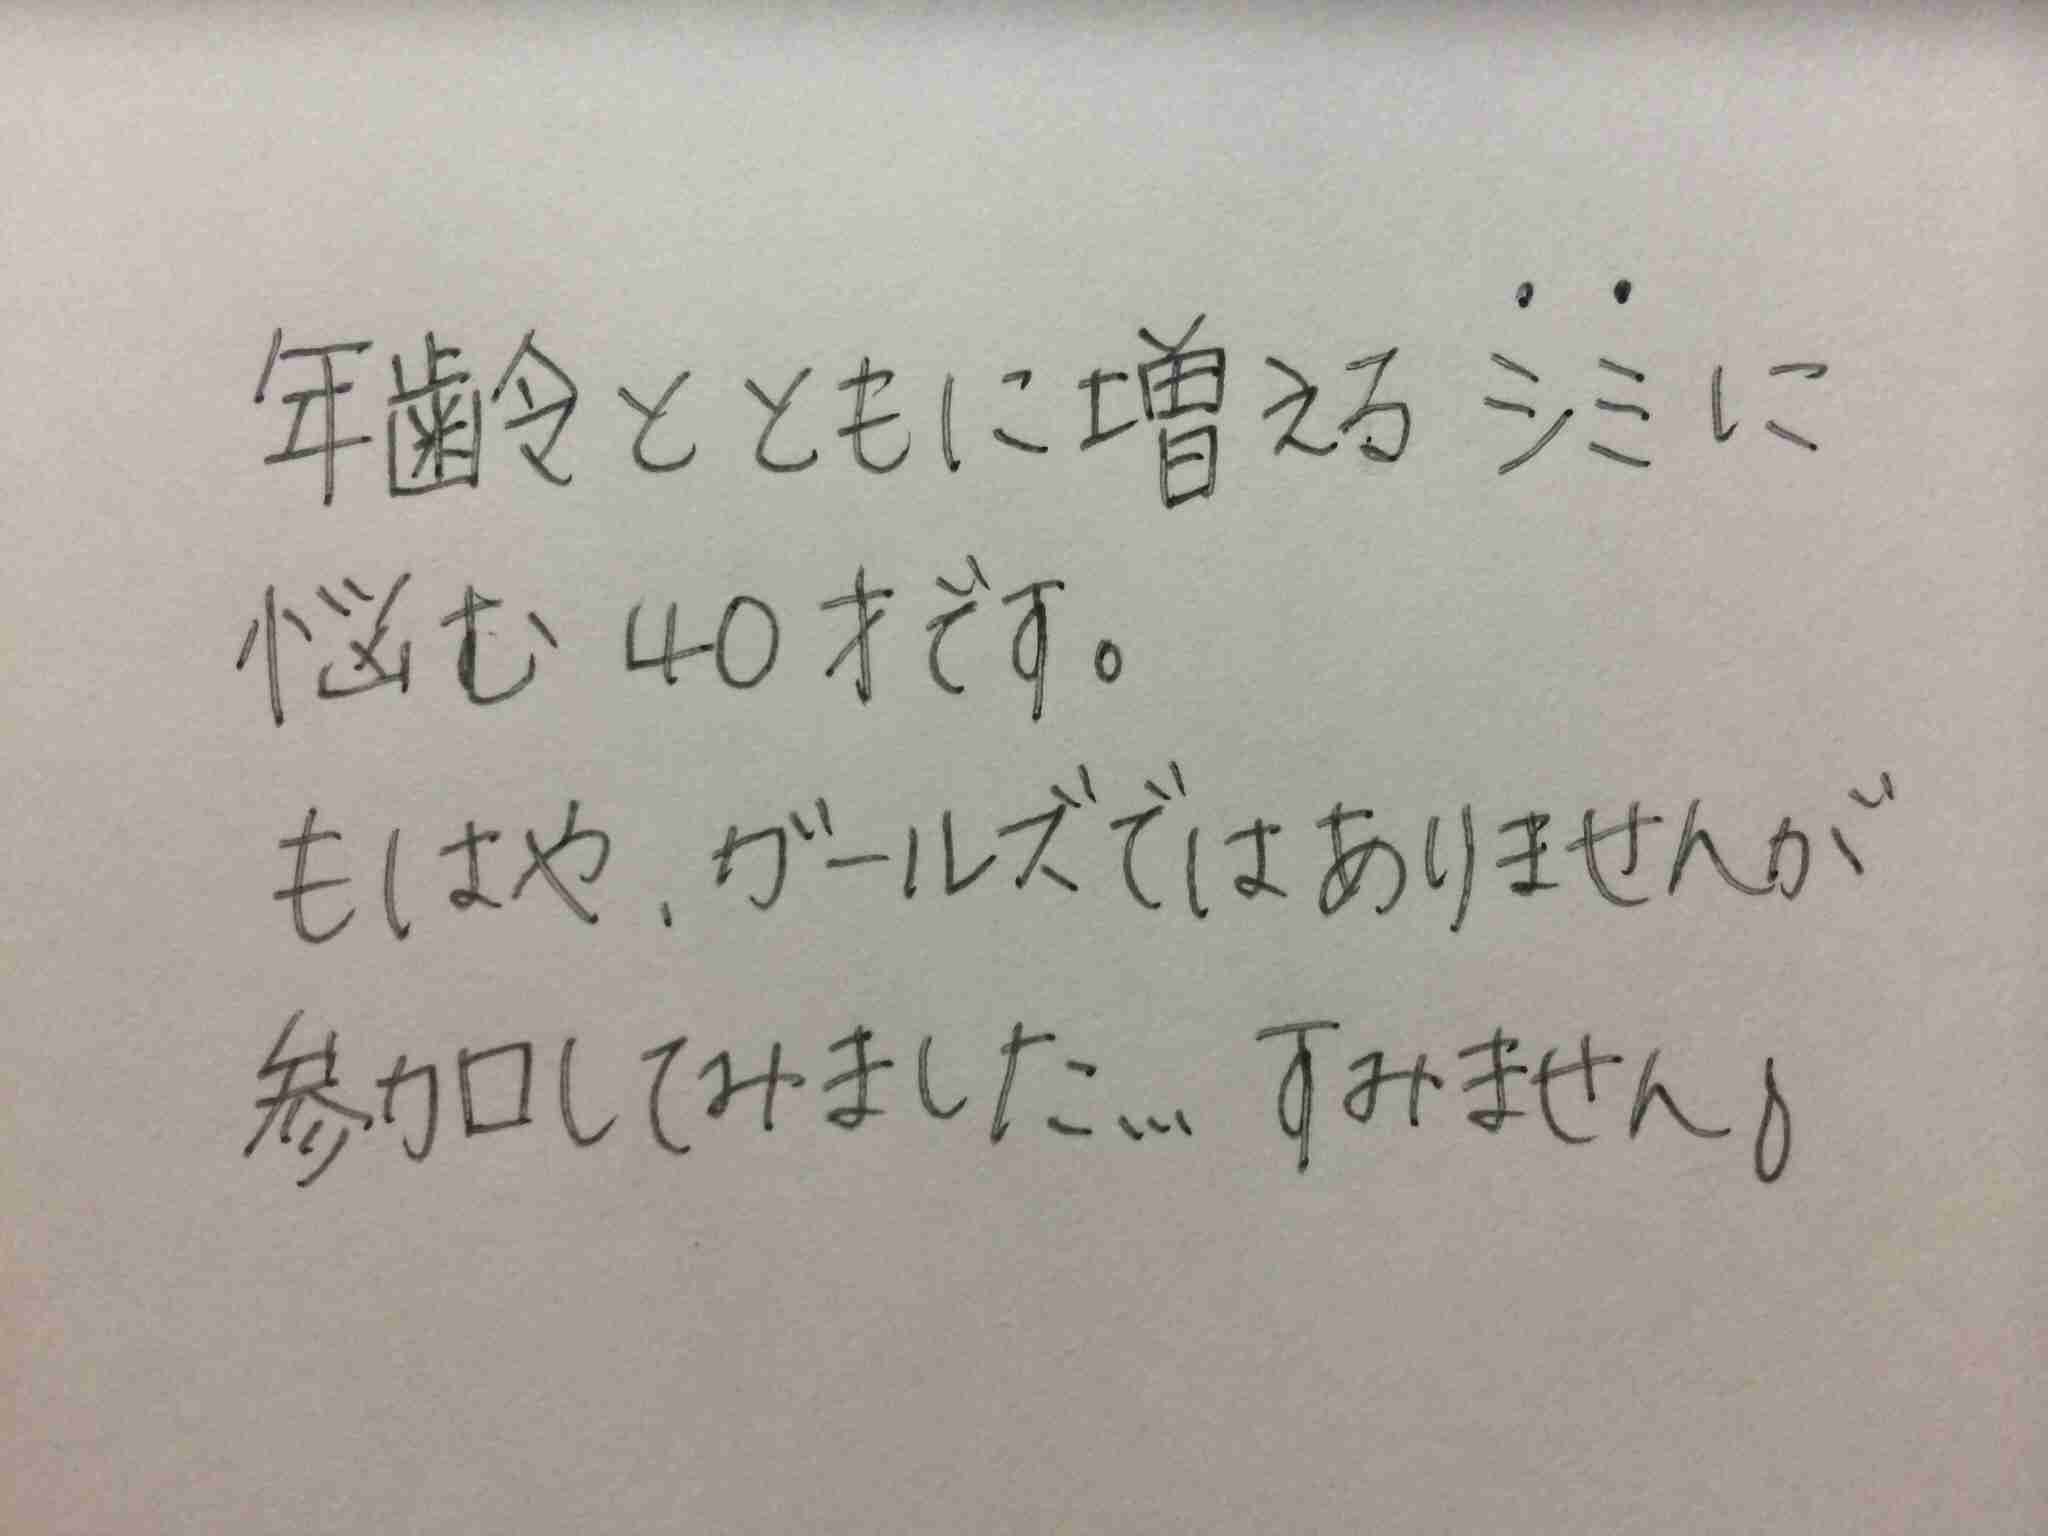 年齢とともに増えるシミに
悩む40才です。
もはや、ガールズではありませんが
参加してみました… すみません